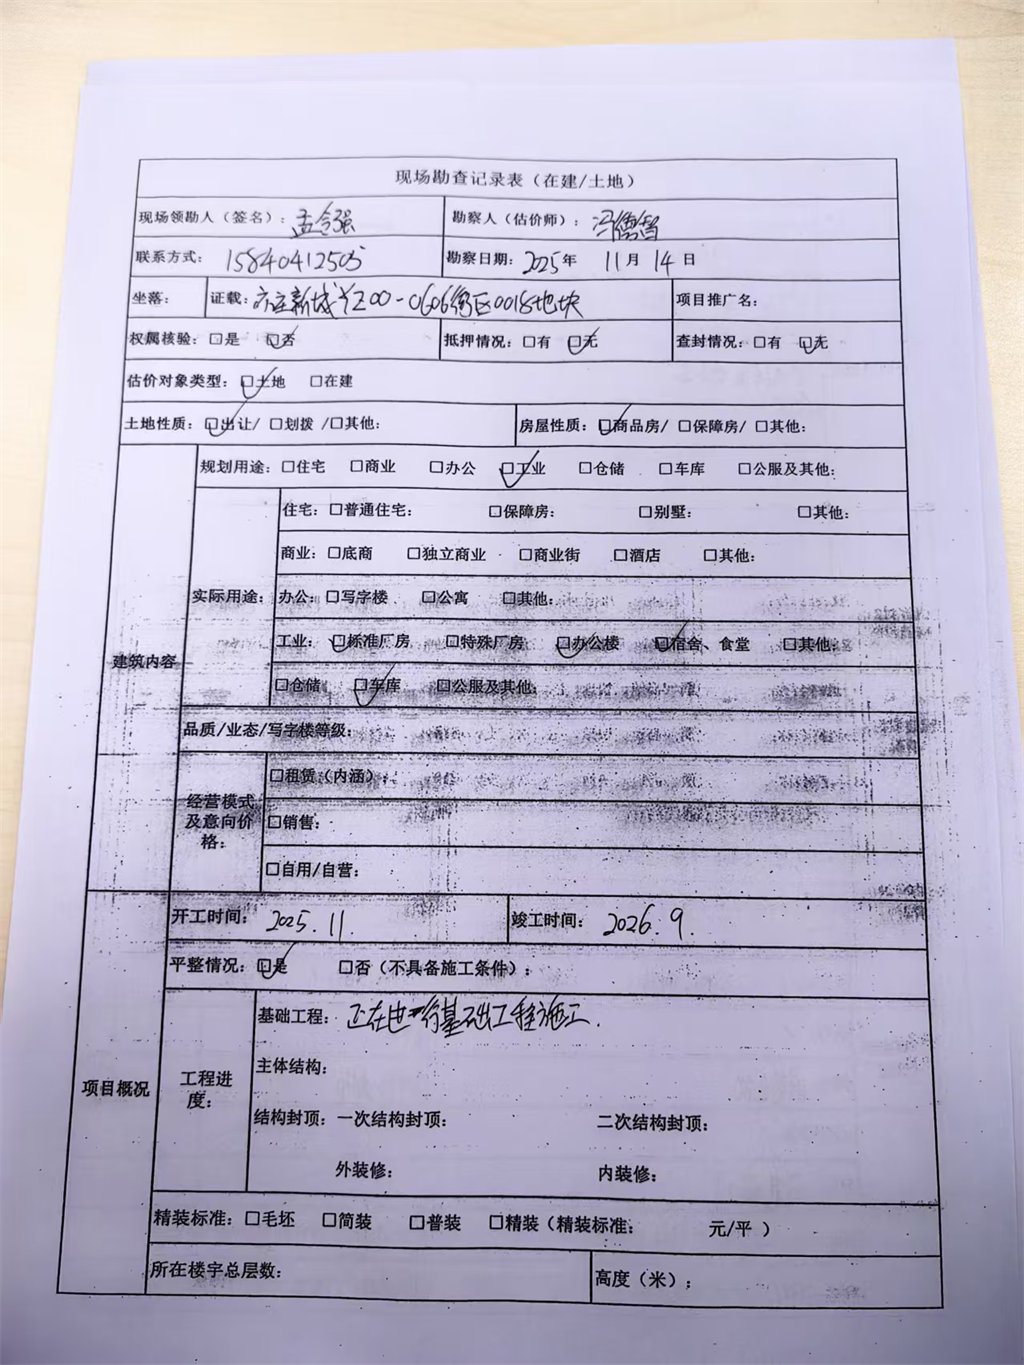 现场勘查记录表（在建/土地）
现场领勘人（签名）：孟令强 勘察人（估价师）：冯儒智
联系方式：15840412505 勘察日期：2025年 11月 14日
坐落： 证载：亦庄新城YZ00-0606街区0018地块 项目推广名：
权属核验：☐是 ☑否 抵押情况：☐有 ☑无 查封情况：☐有 ☑无
估价对象类型：☑土地 ☐在建
土地性质：☑出让/ ☐划拨 /☐其他： 房屋性质：☑商品房/ ☐保障房/ ☐其他：
建筑内容
规划用途：☐住宅 ☐商业 ☐办公 ☑工业 ☐仓储 ☐车库 ☐公服及其他：
实际用途：
住宅：☐普通住宅： ☐保障房： ☐别墅： ☐其他：
商业：☐底商 ☐独立商业 ☐商业街 ☐酒店 ☐其他：
办公：☐写字楼 ☐公寓 ☐其他：
工业：☑标准厂房 ☐特殊厂房 ☑办公楼 ☑宿舍、食堂 ☐其他：
☐仓储 ☑车库 ☐公服及其他：
品质/业态/写字楼等级：
经营模式及意向价格：
☐租赁（内涵）：
☐销售：
☐自用/自营：
项目概况
开工时间：2025.11. 竣工时间：2026.9.
平整情况：☑是 ☐否（不具备施工条件）：
工程进度：
基础工程：正在进行基础工程施工.
主体结构：
结构封顶：一次结构封顶： 二次结构封顶：
外装修： 内装修：
精装标准：☐毛坯 ☐简装 ☐普装 ☐精装（精装标准： 元/平 ）
所在楼宇总层数： 高度（米）；